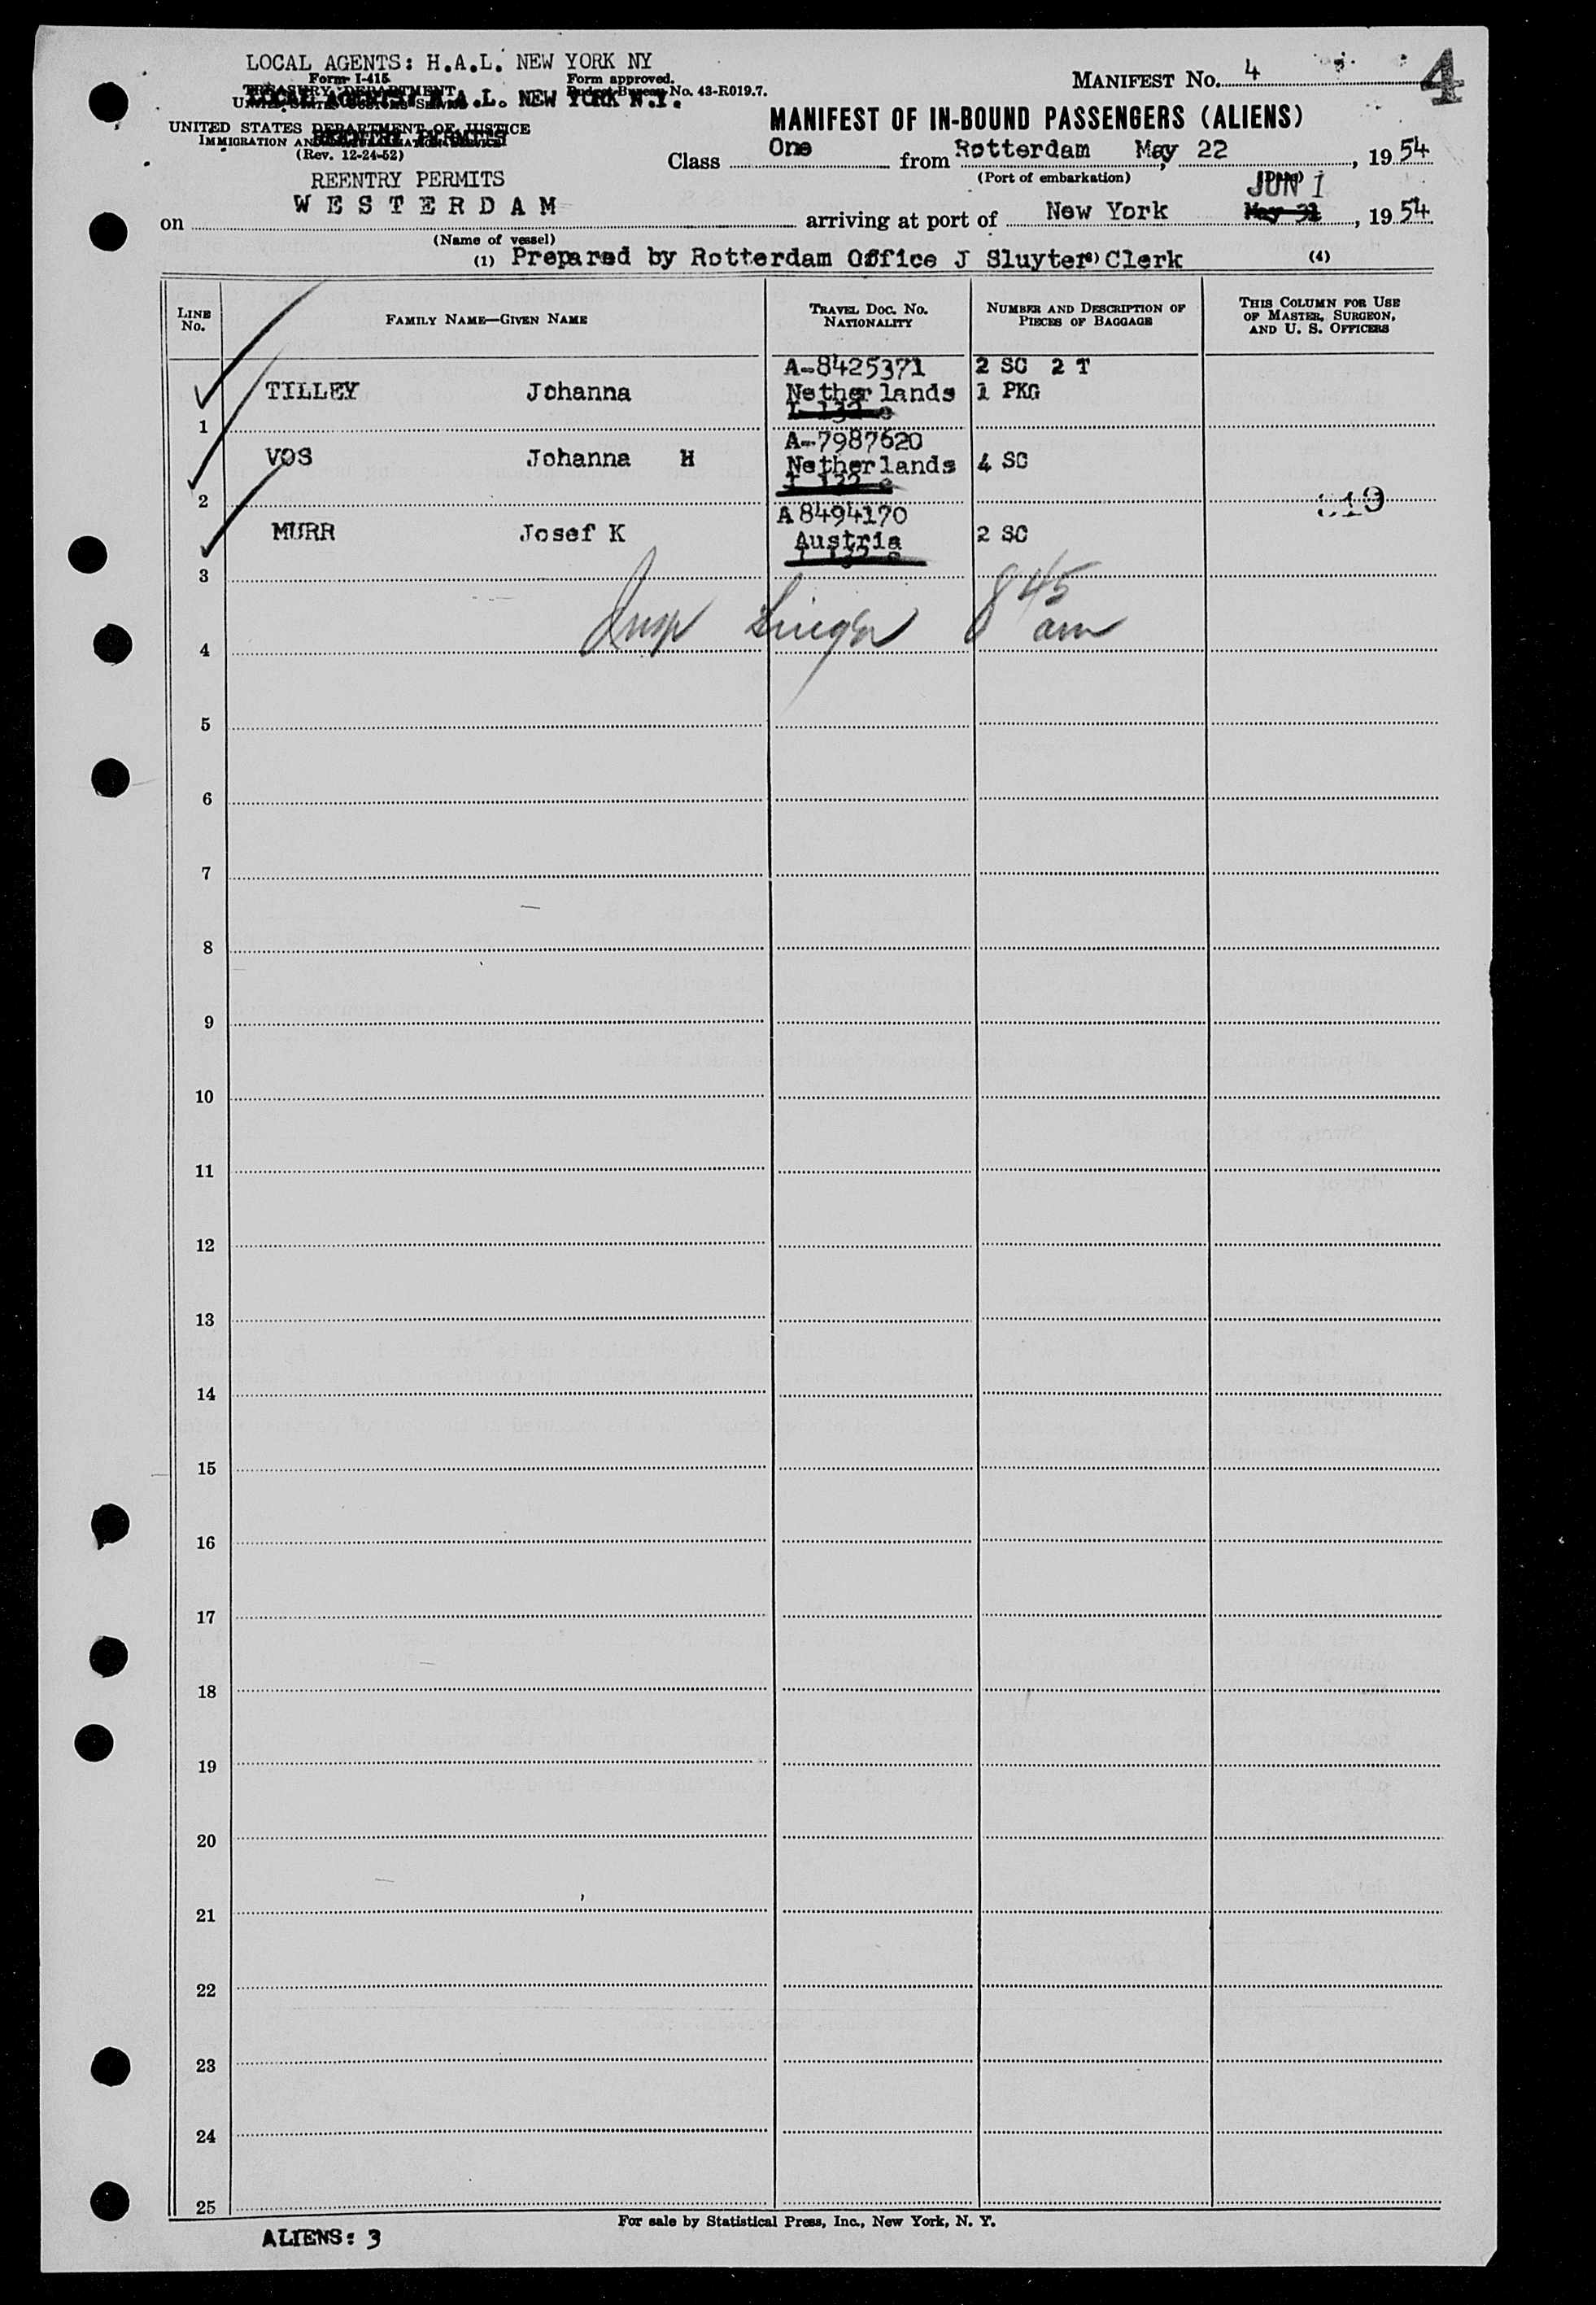 LOCAL AGENTS: H.A.L. NEW YORK NY
Form I-415
Form approved.
Budget Bureau No. 43-R019.7.
TREASURY DEPARTMENT
UNITED STATES CUSTOMS SERVICE
LOCAL AGENTS: H.A.L. NEW YORK N.Y.
UNITED STATES DEPARTMENT OF JUSTICE
IMMIGRATION AND NATURALIZATION SERVICE
REENTRY PERMITS
(Rev. 12-24-52)
REENTRY PERMITS
MANIFEST No. 4
4
MANIFEST OF IN-BOUND PASSENGERS (ALIENS)
Class One from Rotterdam May 22, 1954
(Port of embarkation)
JUN 1
on WESTERDAM arriving at port of New York May 31, 1954
(Name of vessel)
(1) Prepared by Rotterdam Office J Sluyter Clerk (4)
LINE No.
FAMILY NAME—GIVEN NAME
TRAVEL DOC. NO. NATIONALITY
NUMBER AND DESCRIPTION OF PIECES OF BAGGAGE
THIS COLUMN FOR USE OF MASTER, SURGEON, AND U. S. OFFICERS
A-8425371 2 SC 2 T
TILLEY Johanna Netherlands 1 PKG
1
A-7987620
VOS Johanna H Netherlands 4 SC
2
A8494170
MURR Josef K Austria 2 SC
3
Insp Singer 8 45 am
4
5
6
7
8
9
10
11
12
13
14
15
16
17
18
19
20
21
22
23
24
25
For sale by Statistical Press, Inc., New York, N. Y.
ALIENS: 3